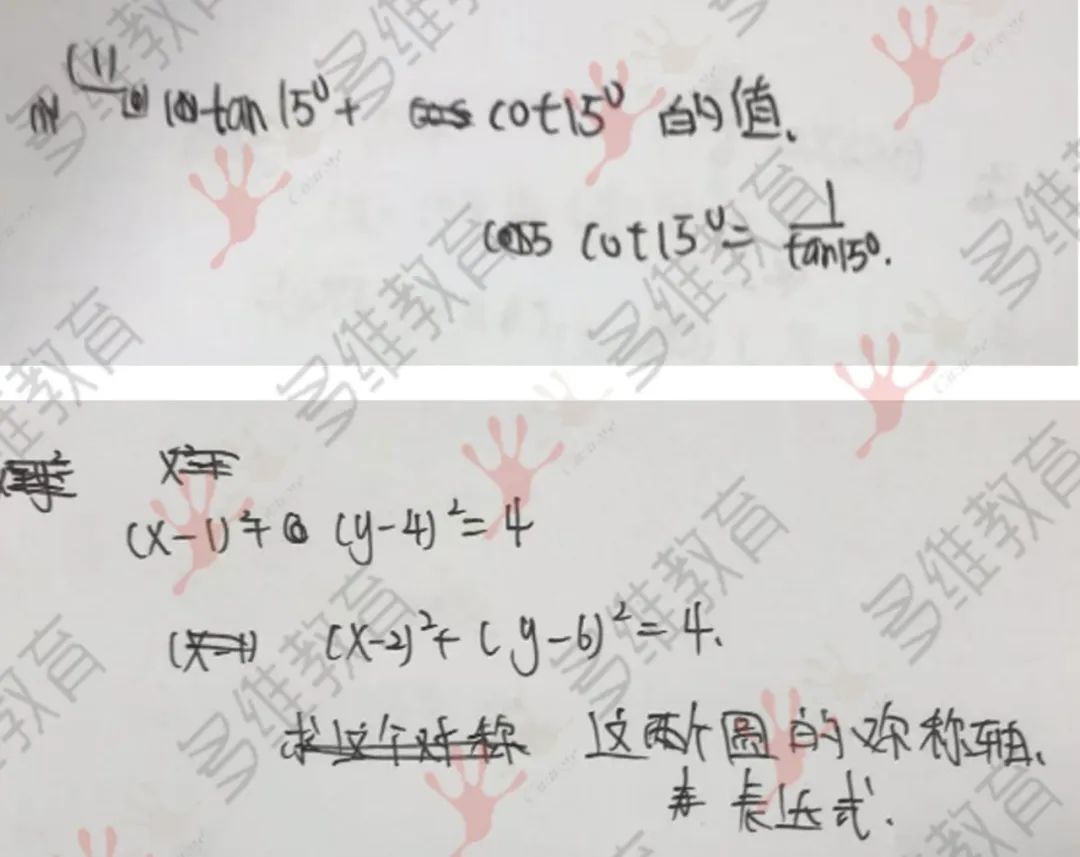 (1) tan15°+ cot15° 的值.
cot15°= 1/tan15°.
(x-1)²+(y-4)²=4
(x-2)²+(y-6)²=4.
求这个对称 这两个圆的对称轴.
表达式.
多维教育